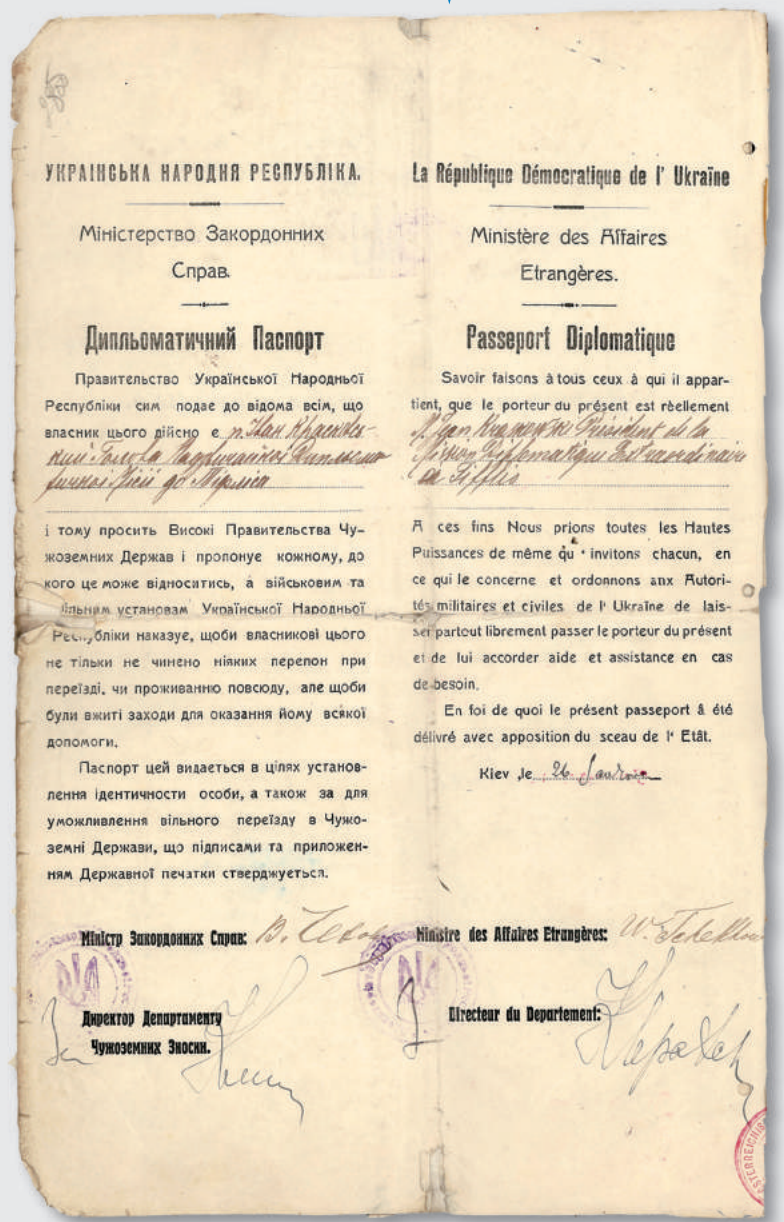 УКРАІНСЬКА НАРОДНЯ РЕСПУБЛІКА.
Міністерство Закордонних
Справ.
Дипльоматичний Паспорт
Правительство Української Народньої
Республіки сим подає до відома всім, що
власник цього дійсно є п. Іван Красков-
ський Голова Надзвичайної Дипльома
тичної Місії до
і тому просить Високі Правительства Чу-
жоземних Держав і пропонує кожному, до
кого це може відноситись, а військовим та
установам Української Народньої
Республіки наказує, щоби власникові цього
не тільки не чинено ніяких перепон при
переїзді. чи проживанню повсюду, але щоби
були вжиті заходи для оказання йому всякої
допомоги.
Паспорт цей видається в цілях установ-
лення ідентичности особи, а також за для
уможливлення вільного переїзду в Чужо-
земні Держави, що підписами та приложен-
ням Державної печатки стверджується.
Міністр Закордонних Справ:
Директор Департаменту
Чужоземних Зносин.
La République Démocratique de l' Ukraïne
Ministère des Affaires
Etrangères.
Passeport Diplomatique
Savoir faisons à tous ceux à qui il appar-
tient, que le porteur du présent est rèellement
M. Président de la
Mission Diplomatique Extraordinaire
à Tifflis
A ces fins Nous prions toutes les Hautes
Puissances de même qu' invitons chacun, en
ce qui le concerne et ordonnons aux Autori-
tés militaires et civiles de l' Ukraïne de lais-
ser partout librement passer le porteur du présent
et de lui accorder aide et assistance en cas
de besoin.
En foi de quoi le présent passeport â été
délivré avec apposition du sceau de l' Etât.
Kiev le 26
Ministre des Affaires Etrangères:
Directeur du Departement: